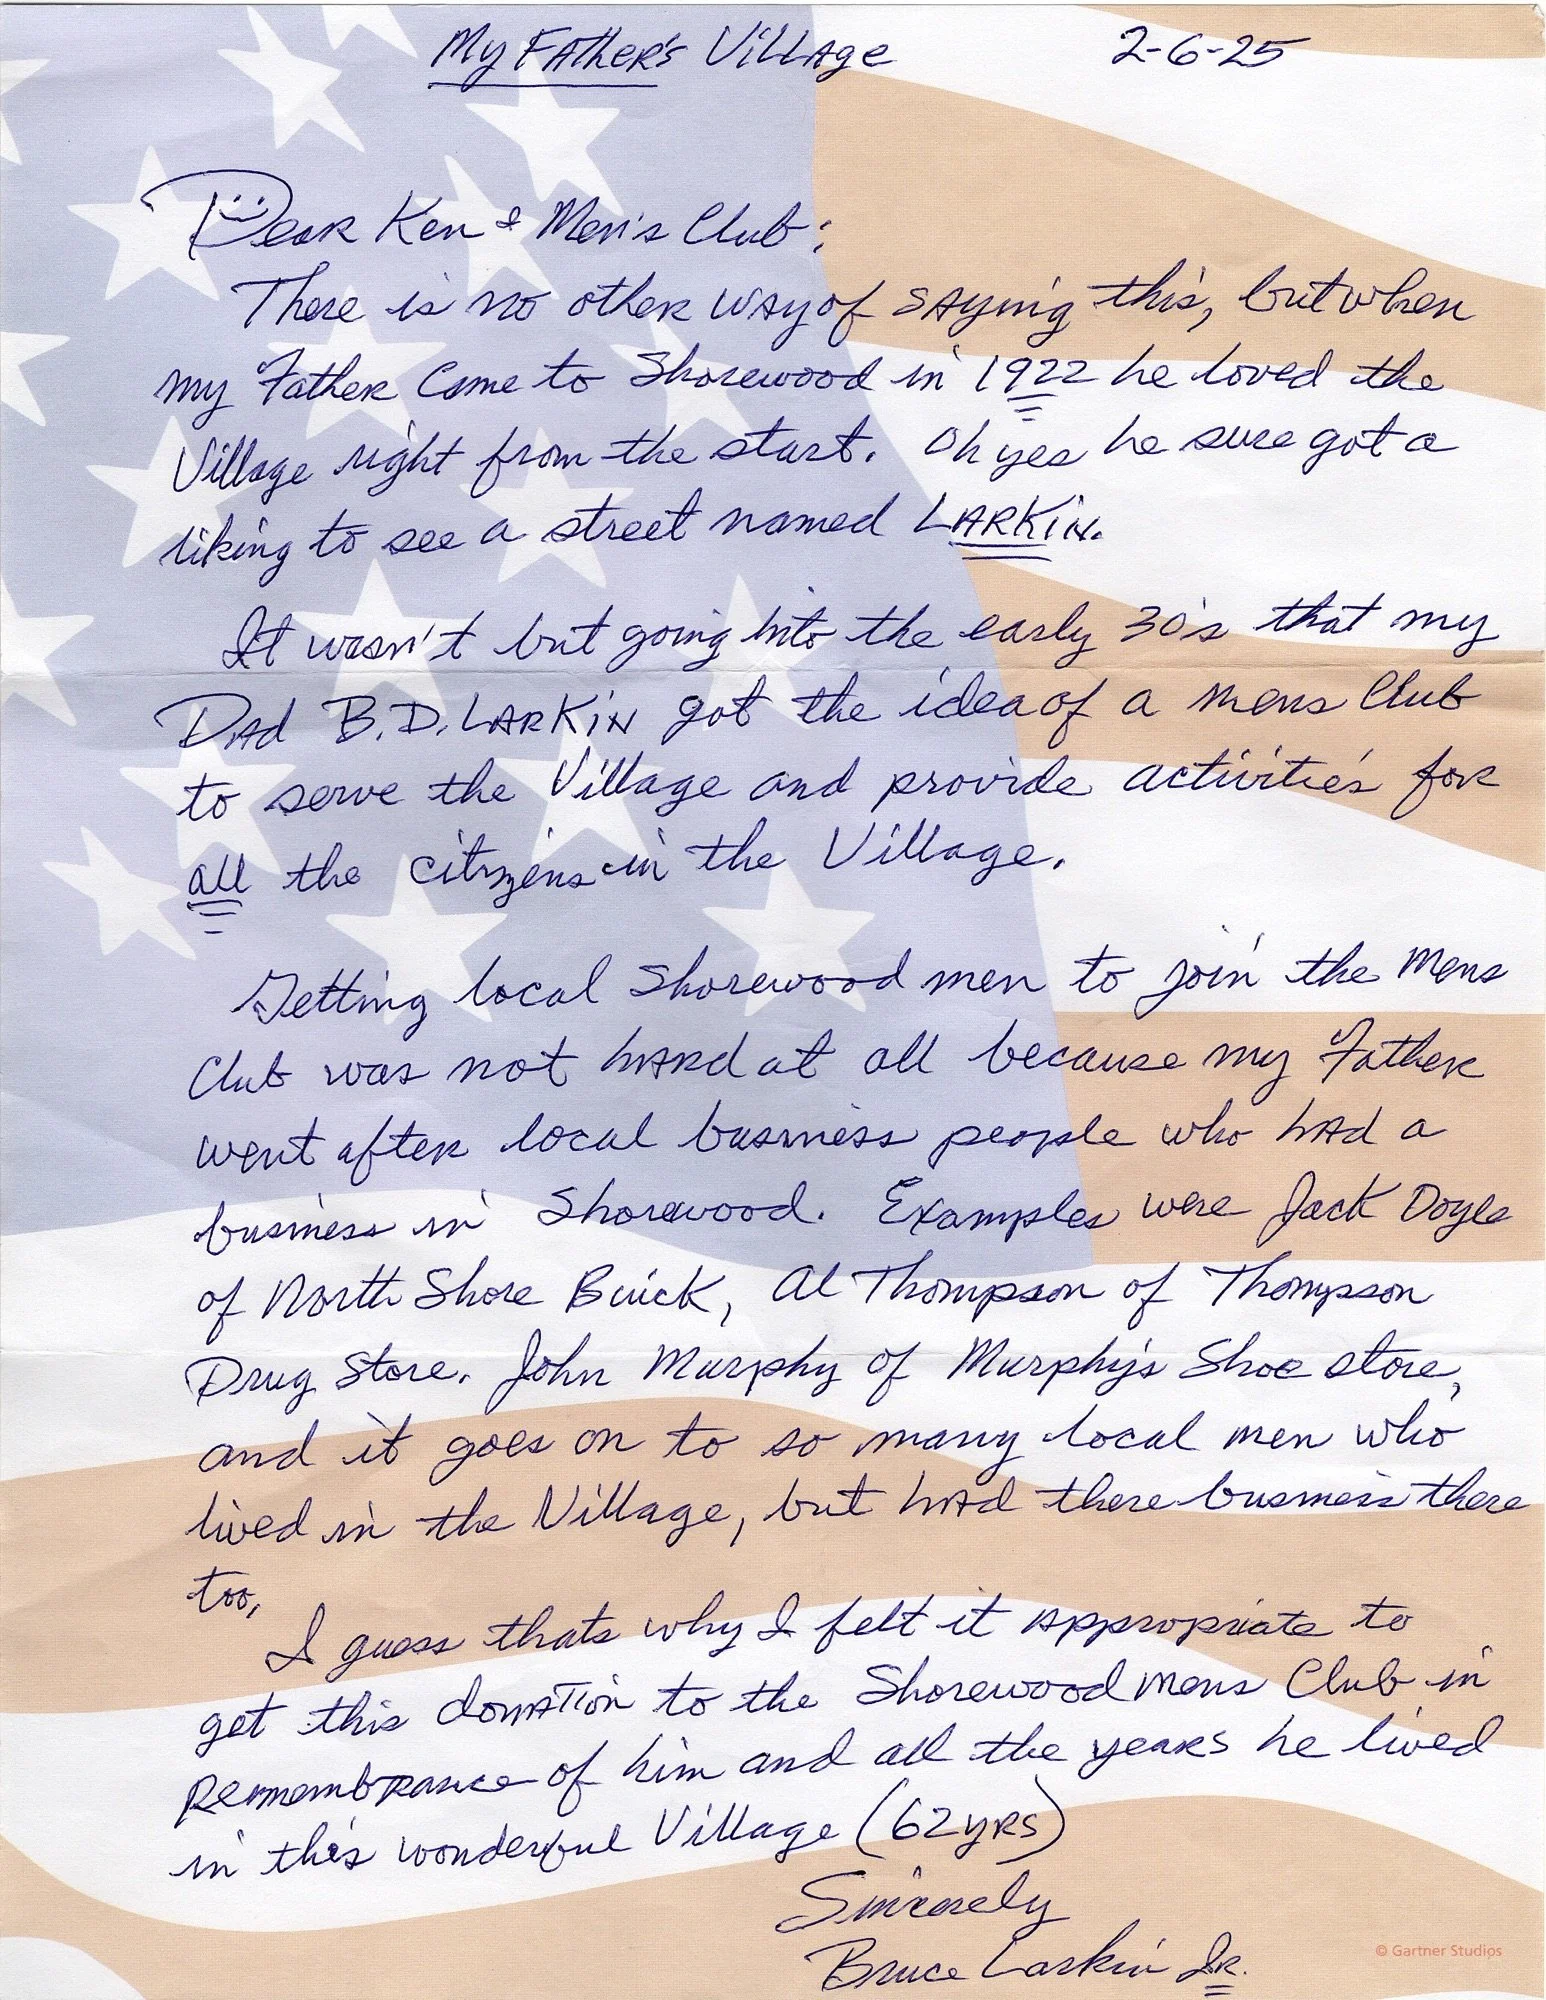 My Father's Village 2-6-25
Dear Ken & Men's Club:
There is no other way of saying this, but when
my Father came to Shorewood in 1922 he loved the
Village right from the start. Oh yes he sure got a
liking to see a street named LARKIN.
It wasn't but going into the early 30's that my
Dad B.D. LARKIN got the idea of a mens Club
to serve the Village and provide activities for
all the citizens in the Village.
Getting local Shorewood men to join the Mens
Club was not hard at all because my Father
went after local business people who had a
business in Shorewood. Examples were Jack Doyle
of North Shore Buick, Al Thompson of Thompson
Drug Store. John Murphy of Murphy's Shoe store,
and it goes on to so many local men who
lived in the Village, but had there business there
too,
I guess thats why I felt it appropriate to
get this donation to the Shorewood mens Club in
Remembrance of him and all the years he lived
in this wonderful Village (62 yrs)
Sincerely
Bruce Larkin Jr.
© Gartner Studios